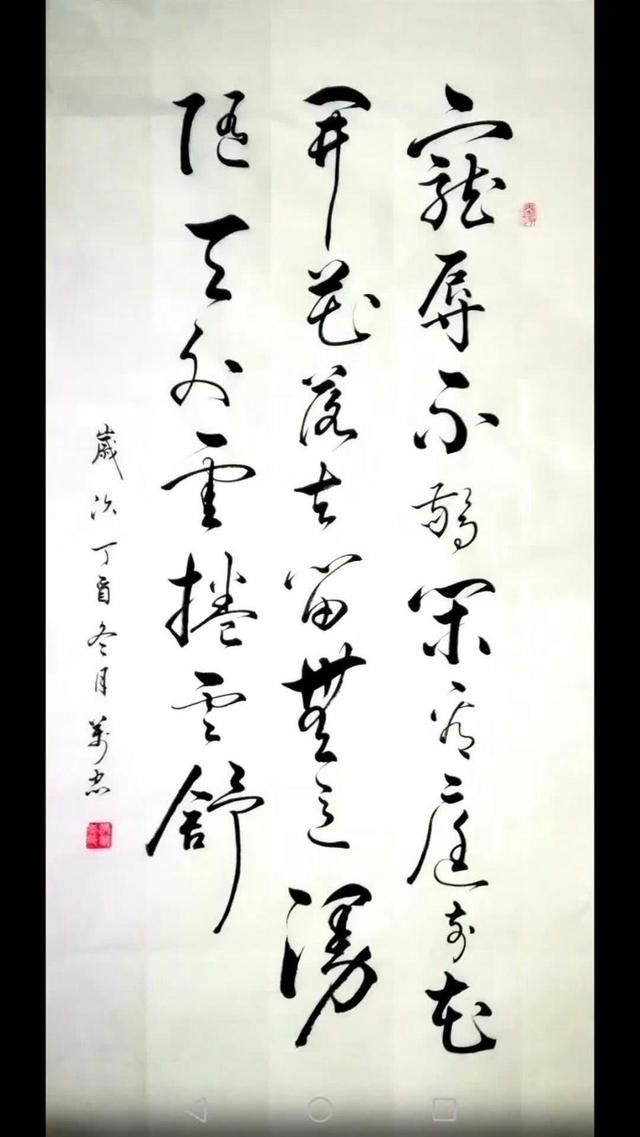 寵辱不驚閑看庭前花
開花落去留無意漫
隨天外雲捲雲舒
歲次丁酉冬月萬